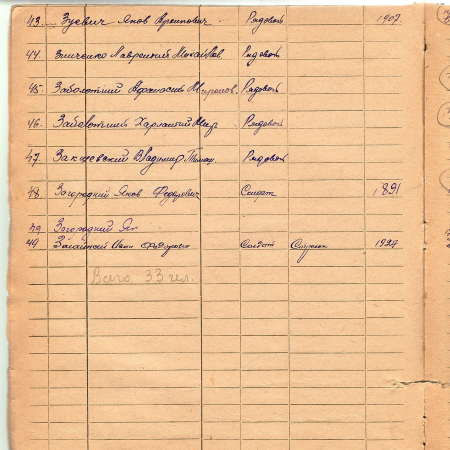 43. Зуевич Яков Архипович Рядовой 1907
44. Зинченко Лаврентий Михайлов Рядовой
45. Заболотний Афанасий Рядовой
46. Заболотний Харлантий Рядовой
47. Закшевский Владимир Рядовой
48. Загородний Яков Федорович Солдат 1891
49 Загородний Як
49 Иван Федорович Солдат 1924
Всего 33 чел.